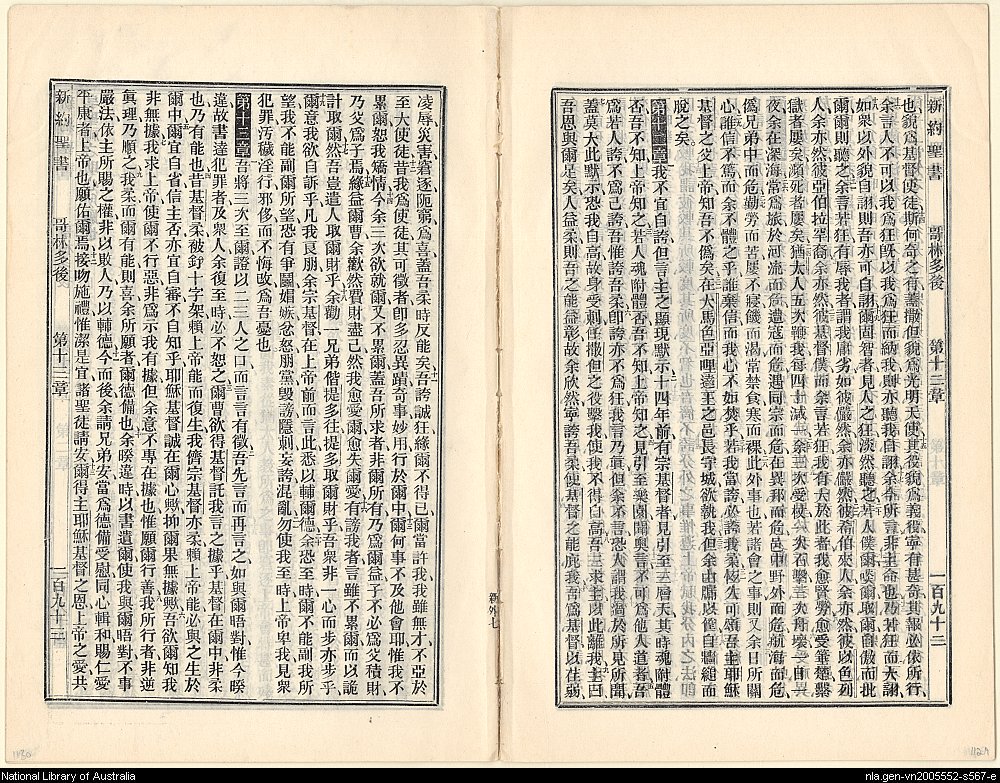 新約聖書　哥林多後　第十二章　一百九十二
也貌爲基督使徒斯何奇之有蓋撒但貌爲光明天使其役貌爲義役寧有甚奇其報必依所行
余言人不可以我爲狂旣以我爲狂而納我則亦聽我自詡余今所言非主命也乃若狂而大詡
如衆以外貌自詡則吾亦可自詡爾固智者見人之狂淡然聽之若人僕爾噬爾取爾自傲而批
爾頰則聽之余言若狂有辱我者謂我庸劣如彼儼然余亦儼然彼希伯來人余亦然彼以色列
人余亦然彼亞伯拉罕裔余亦然彼基督僕而余言若狂我有大於此者我愈賢勞愈受箠楚繫
獄者屢矣瀕死者屢矣猶太人五次鞭我每四十減一余三次受杖一次石擊三次舟壞
夜余在深海常爲旅於河流而危遭寇而危遇同宗而危在異邦而危邑中野外而危航海而危
僞兄弟中而危勤勞而苦屢不寢饑而渴常禁食寒而裸此外事也若諸會之事則又余日所關
心誰信不篤而余不體之乎誰棄信而我心不如焚乎若我當誇必誇我柔恆久可頌吾主耶穌
基督之父上帝知吾不僞矣在大馬色亞哩達王之邑長守城欲執我但余由牖以筐自墉縋而
脫之矣
第十二章我不宜自誇但言主之顯現默示十四年前有宗基督者見引至三層天其時魂附體
否吾不知上帝知之若人魂體附否吾不知上帝知之見引至樂園聞奧言不可言人道者吾
爲若人誇不爲己誇吾惟誇吾柔卽吾誇亦不爲狂我言乃眞但余不言恐人謂我過於所見所聞
蓋莫大此默示恐我自高故身受刺任撒但之役擊我使我不得自高吾三求主以此離我主曰
吾恩與爾足矣人益柔則吾之能益彰故余欣然寧誇吾柔使基督之能庇我吾爲基督以任弱
新外七
凌辱災害窘逐阨窮爲喜蓋吾柔時反能矣吾誇誠狂緣爾不得已爾當許我我雖無才不亞於
至大使徒昔我爲使徒其可徵者卽多忍異蹟奇事妙用行於爾中爾何事不及他會卽惟我不
累爾恕我矯情今余三次欲就爾又不累爾蓋吾所求者非爾所有乃爲爾益子不必爲父積財
乃父爲子焉緣益爾曹余歡然費財盡己然我愈愛爾愈失爾愛有謗我者言雖不累爾而以詭
計取爾然吾豈遣人取爾財乎余勸一兄弟偕提多往提多取爾財乎吾衆非一心而步亦步乎
爾意我欲自訴乎凡我良朋余宗基督在上帝前而言此悉以輔爾德余恐至時爾不能副我所
望我不能副爾所望恐有爭鬭媢嫉忿怒朋黨毀謗隱刺妄誇混亂勿使我至時上帝卑我見衆
犯罪汚穢淫行邪侈而不悔改爲吾憂也
第十三章吾將三次至爾證以二三人之口而言言有徵吾先言而再言之如與爾晤對惟今暌
違故書達犯罪者及衆人余復至時必不恕之爾曹欲得基督託我言之據乎基督在爾中非柔
也乃有能也昔基督柔被釘十字架賴上帝能而復生我儕宗基督亦柔賴上帝能必與之生於
爾中爾宜自省信主否亦宜自審不自知乎耶穌基督誠在爾心歟抑爾果無據歟吾欲爾知我
非無據我求上帝使爾不行惡非爲示我有據但余意不專在據也惟願爾行善我所行者非逆
眞理乃順之我柔而爾有能則喜余所願者爾德備也余暌違時以書遺爾使我與爾晤對不事
嚴法依主所賜之權非以敗人乃以輔德今而後余請兄弟安當爲德備受慰同心輯和賜仁愛
平康者上帝也願佑爾焉接吻施禮惟潔是宜諸聖徒請安爾得主耶穌基督之恩上帝之愛共
新約聖書　哥林多後　第十三章　一百九十三
1130
1129
National Library of Australia
nla.gen-vn2005552-s567-e